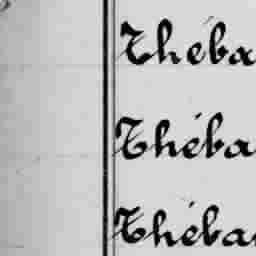 Théba
Théba
Théba